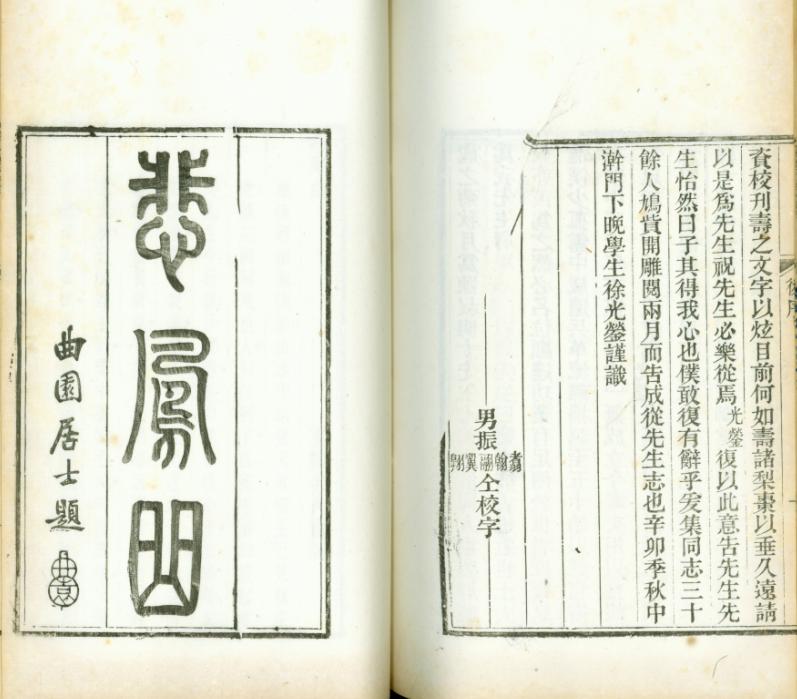 資校刊壽之文字以炫目前何如壽諸梨棗以垂久遠請
以是爲先生祝先生必樂從焉光鎣復以此意告先生先
生怡然曰子其得我心也僕敢復有辭乎爰集同志三十
餘人鳩貲開雕閱兩月而告成從先生志也辛卯季秋中
澣門下晚學生徐光鎣謹識
男振翥翰翼仝校字
悲鳳曲
曲園居士題